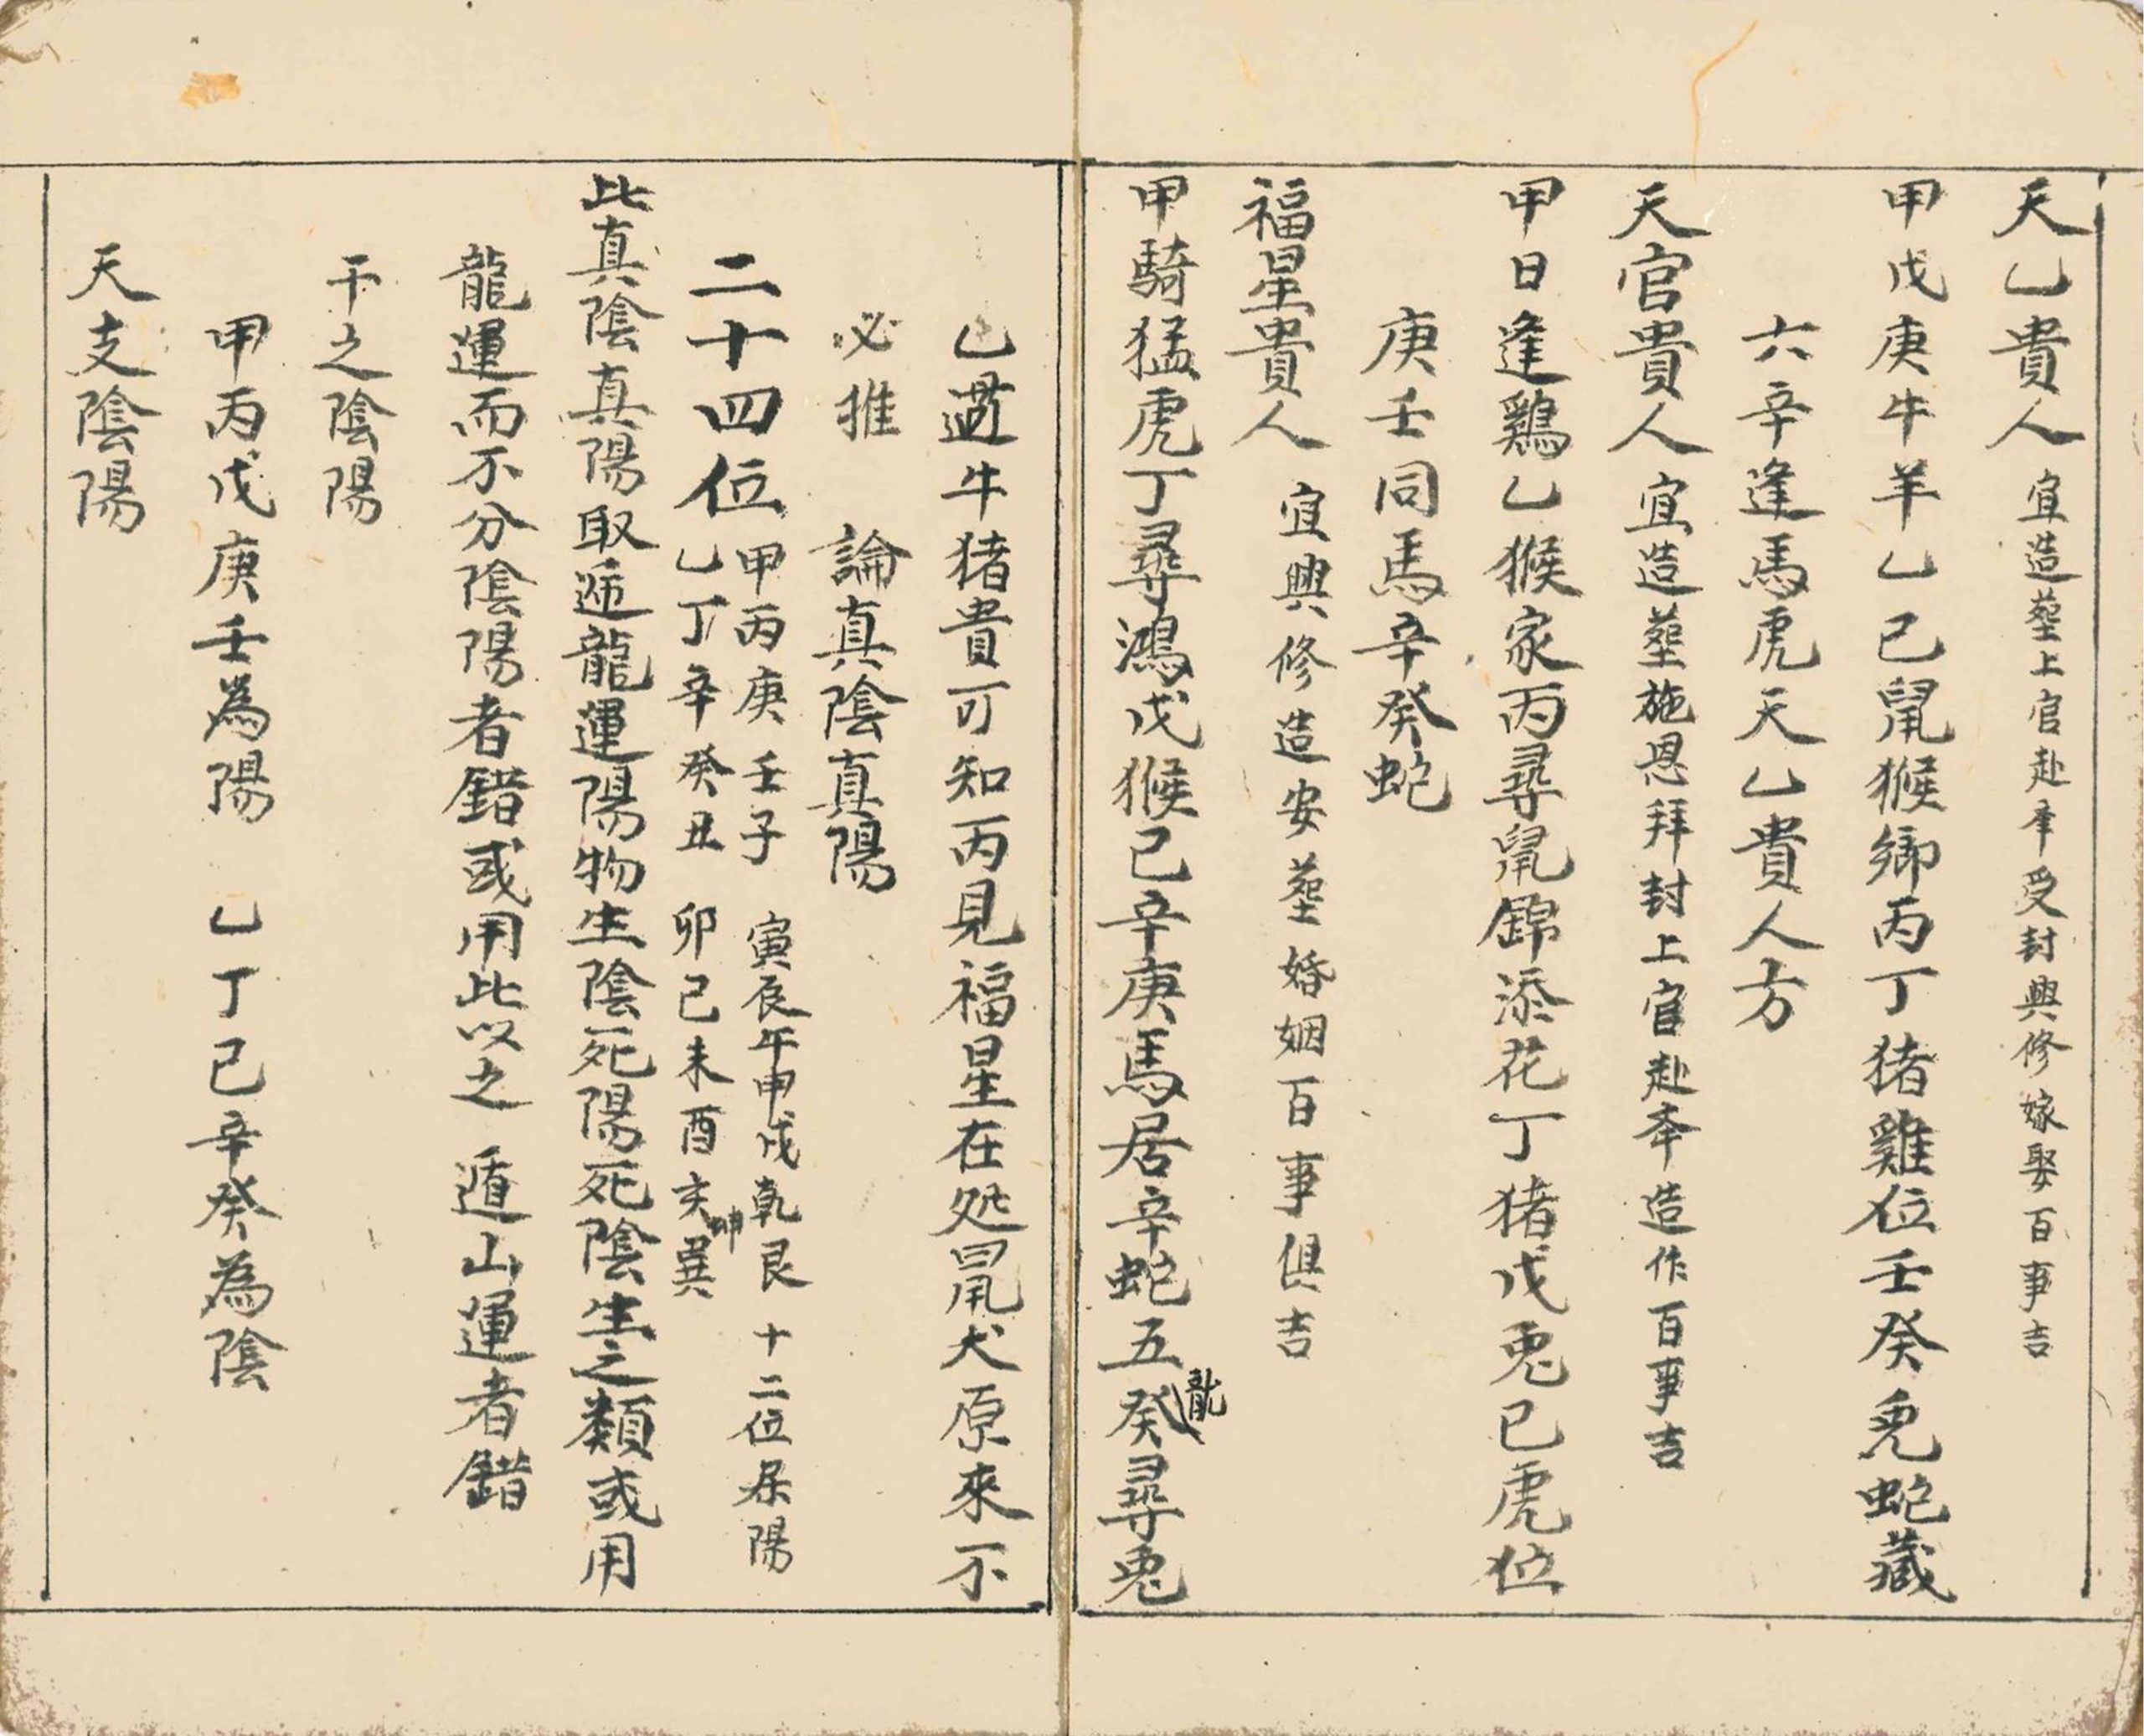 天乙貴人 宜造塟上官赴奉受封興修嫁娶百事吉
甲戊庚牛羊乙己鼠猴鄉丙丁猪雞位壬癸兎蛇藏
六辛逢馬虎天乙貴人方
天官貴人 宜造塟施恩拜封上官赴奉造作百事吉
甲日逢鷄乙猴家丙尋鼠錦添花丁猪戊兎已虎位
庚壬同馬辛癸蛇
福星貴人 宜興修造安塟婚姻百事俱吉
甲騎猛虎丁尋鴻戊猴己辛庚馬居辛蛇五癸尋兎
龍
乙過牛猪貴可知丙見福星在処鼠犬原來不
必推 論真陰真陽
二十四位 甲丙庚壬子 寅辰午申戌乾艮 十二位居陽
乙丁辛癸丑 卯己未酉亥巽
坤
此真陰真陽取遁龍運陽物生陰死陽死陰生之類或用
龍運而不分陰陽者錯或用此以之 遁山運者錯
干之陰陽
甲丙戊庚壬為陽 乙丁已辛癸為陰
天支陰陽